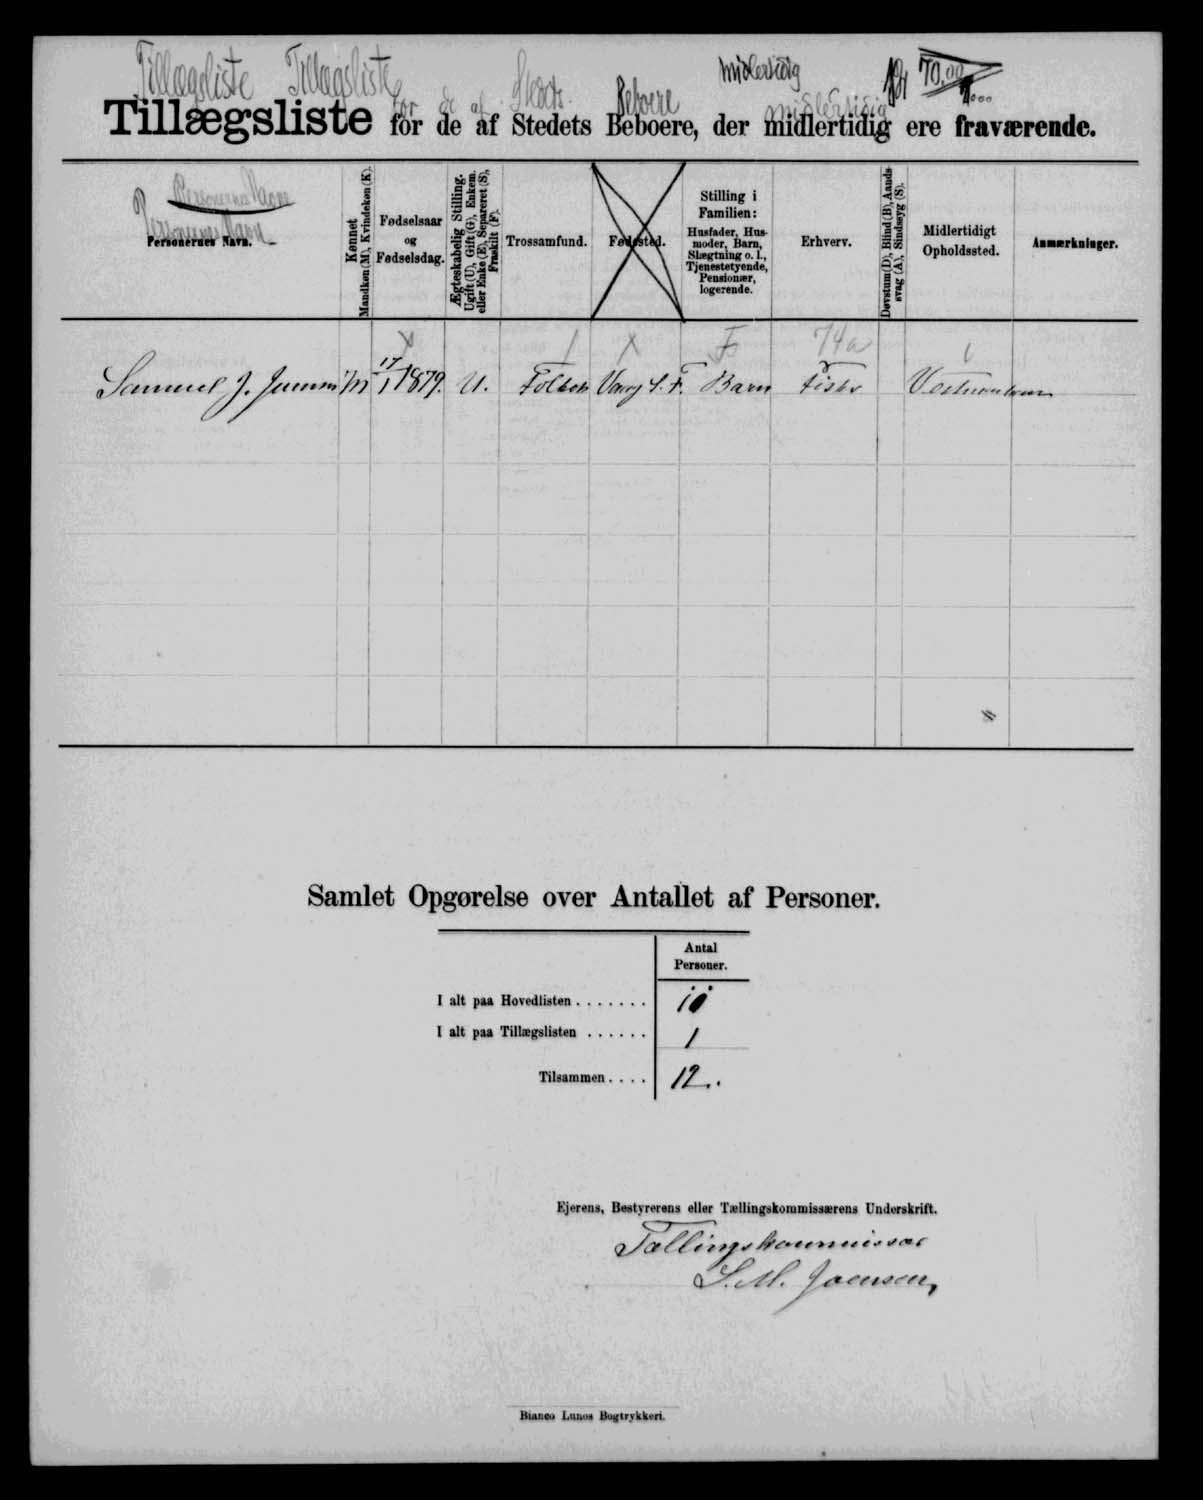 Tillægsliste Tillægsliste for de af Stedets Beboere midlertidig midlertidig 70.00
Tillægsliste for de af Stedets Beboere, der midlertidig ere fraværende.
Personernes Navn
Personernes Navn.
Kønnet
Mandkøn (M), Kvindekøn (K).
Fødselsaar
og
Fødselsdag.
Ægteskabelig Stilling.
Ugift (U), Gift (G), Enkem.
eller Enke (E), Separeret (S),
Fraskilt (F).
Trossamfund.
Fødested.
Stilling i
Familien:
Husfader, Hus-
moder, Barn,
Slægtning o. l.,
Tjenestetyende,
Pensionær,
logerende.
Erhverv.
Døvstum (D), Blind (B), Aands-
svag (A), Sindssyg (S).
Midlertidigt
Opholdssted.
Anmærkninger.
x / x F 74a 1
Samuel J. M 17/1 1879. U. Folkek S. F. Barn Fisker
Samlet Opgørelse over Antallet af Personer.
Antal
Personer.
I alt paa Hovedlisten . . . . . . . 11
I alt paa Tillægslisten . . . . . . 1
Tilsammen . . . . 12.
Ejerens, Bestyrerens eller Tællingskommissærens Underskrift.
Tællingskommissær
S. M. Joensen,
Bianco Lunos Bogtrykkeri.